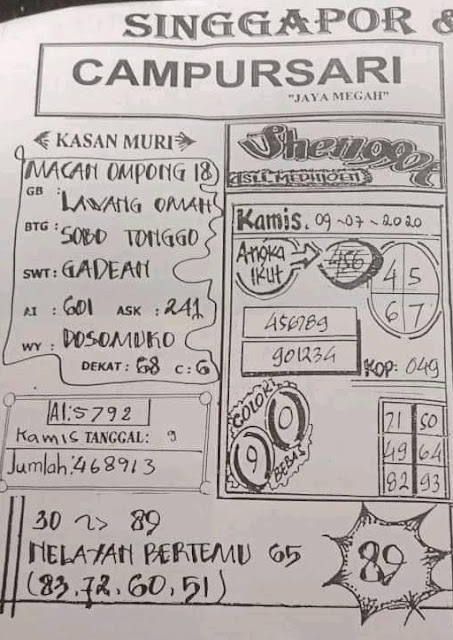 SINGGAPOR &
CAMPURSARI
"JAYA MEGAH"
KASAN MURI
MACAN OMPONG 18
GB : LAWANG OMAH
BTG : SOBO TONGGO
SWT : GADEAN
AI : 601 ASK : 241
WY : DOSOMUKO
DEKAT : 68 C : 6
AI:5792
Kamis TANGGAL: 9
Jumlah:468913
Shenggot
Kamis. 09-07-2020
Angka Ikut
456
4 5
6 7
456789
901234
KOP: 049
GOLOK
0
9
BEBAS
71 50
49 64
82 93
30 ~> 89
NELAYAN BERTEMU 65
(83,72,60,51)
89